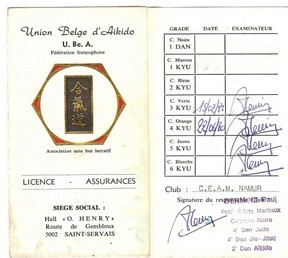 Union Belge d'Aikido
U. Be. A.
Fédération francophone
合氣道
Association sans but lucratif
LICENCE - ASSURANCES
SIEGE SOCIAL :
Hall «O. HENRY»
Route de Gembloux
5002 SAINT-SERVAIS
GRADE DATE EXAMINATEUR
C. Noire
1 DAN
C. Marron
1 KYU
C. Bleue
2 KYU
C. Verte
3 KYU
C. Orange
4 KYU
C. Jaune
5 KYU
C. Blanche
6 KYU
Club : C.E.A.M. NAMUR
Signature du
Prof. d'Arts Martiaux
Ceinture Noire
4° Dan Judo
4° Dan Jiu-Jitsu
2° Dan Aikido